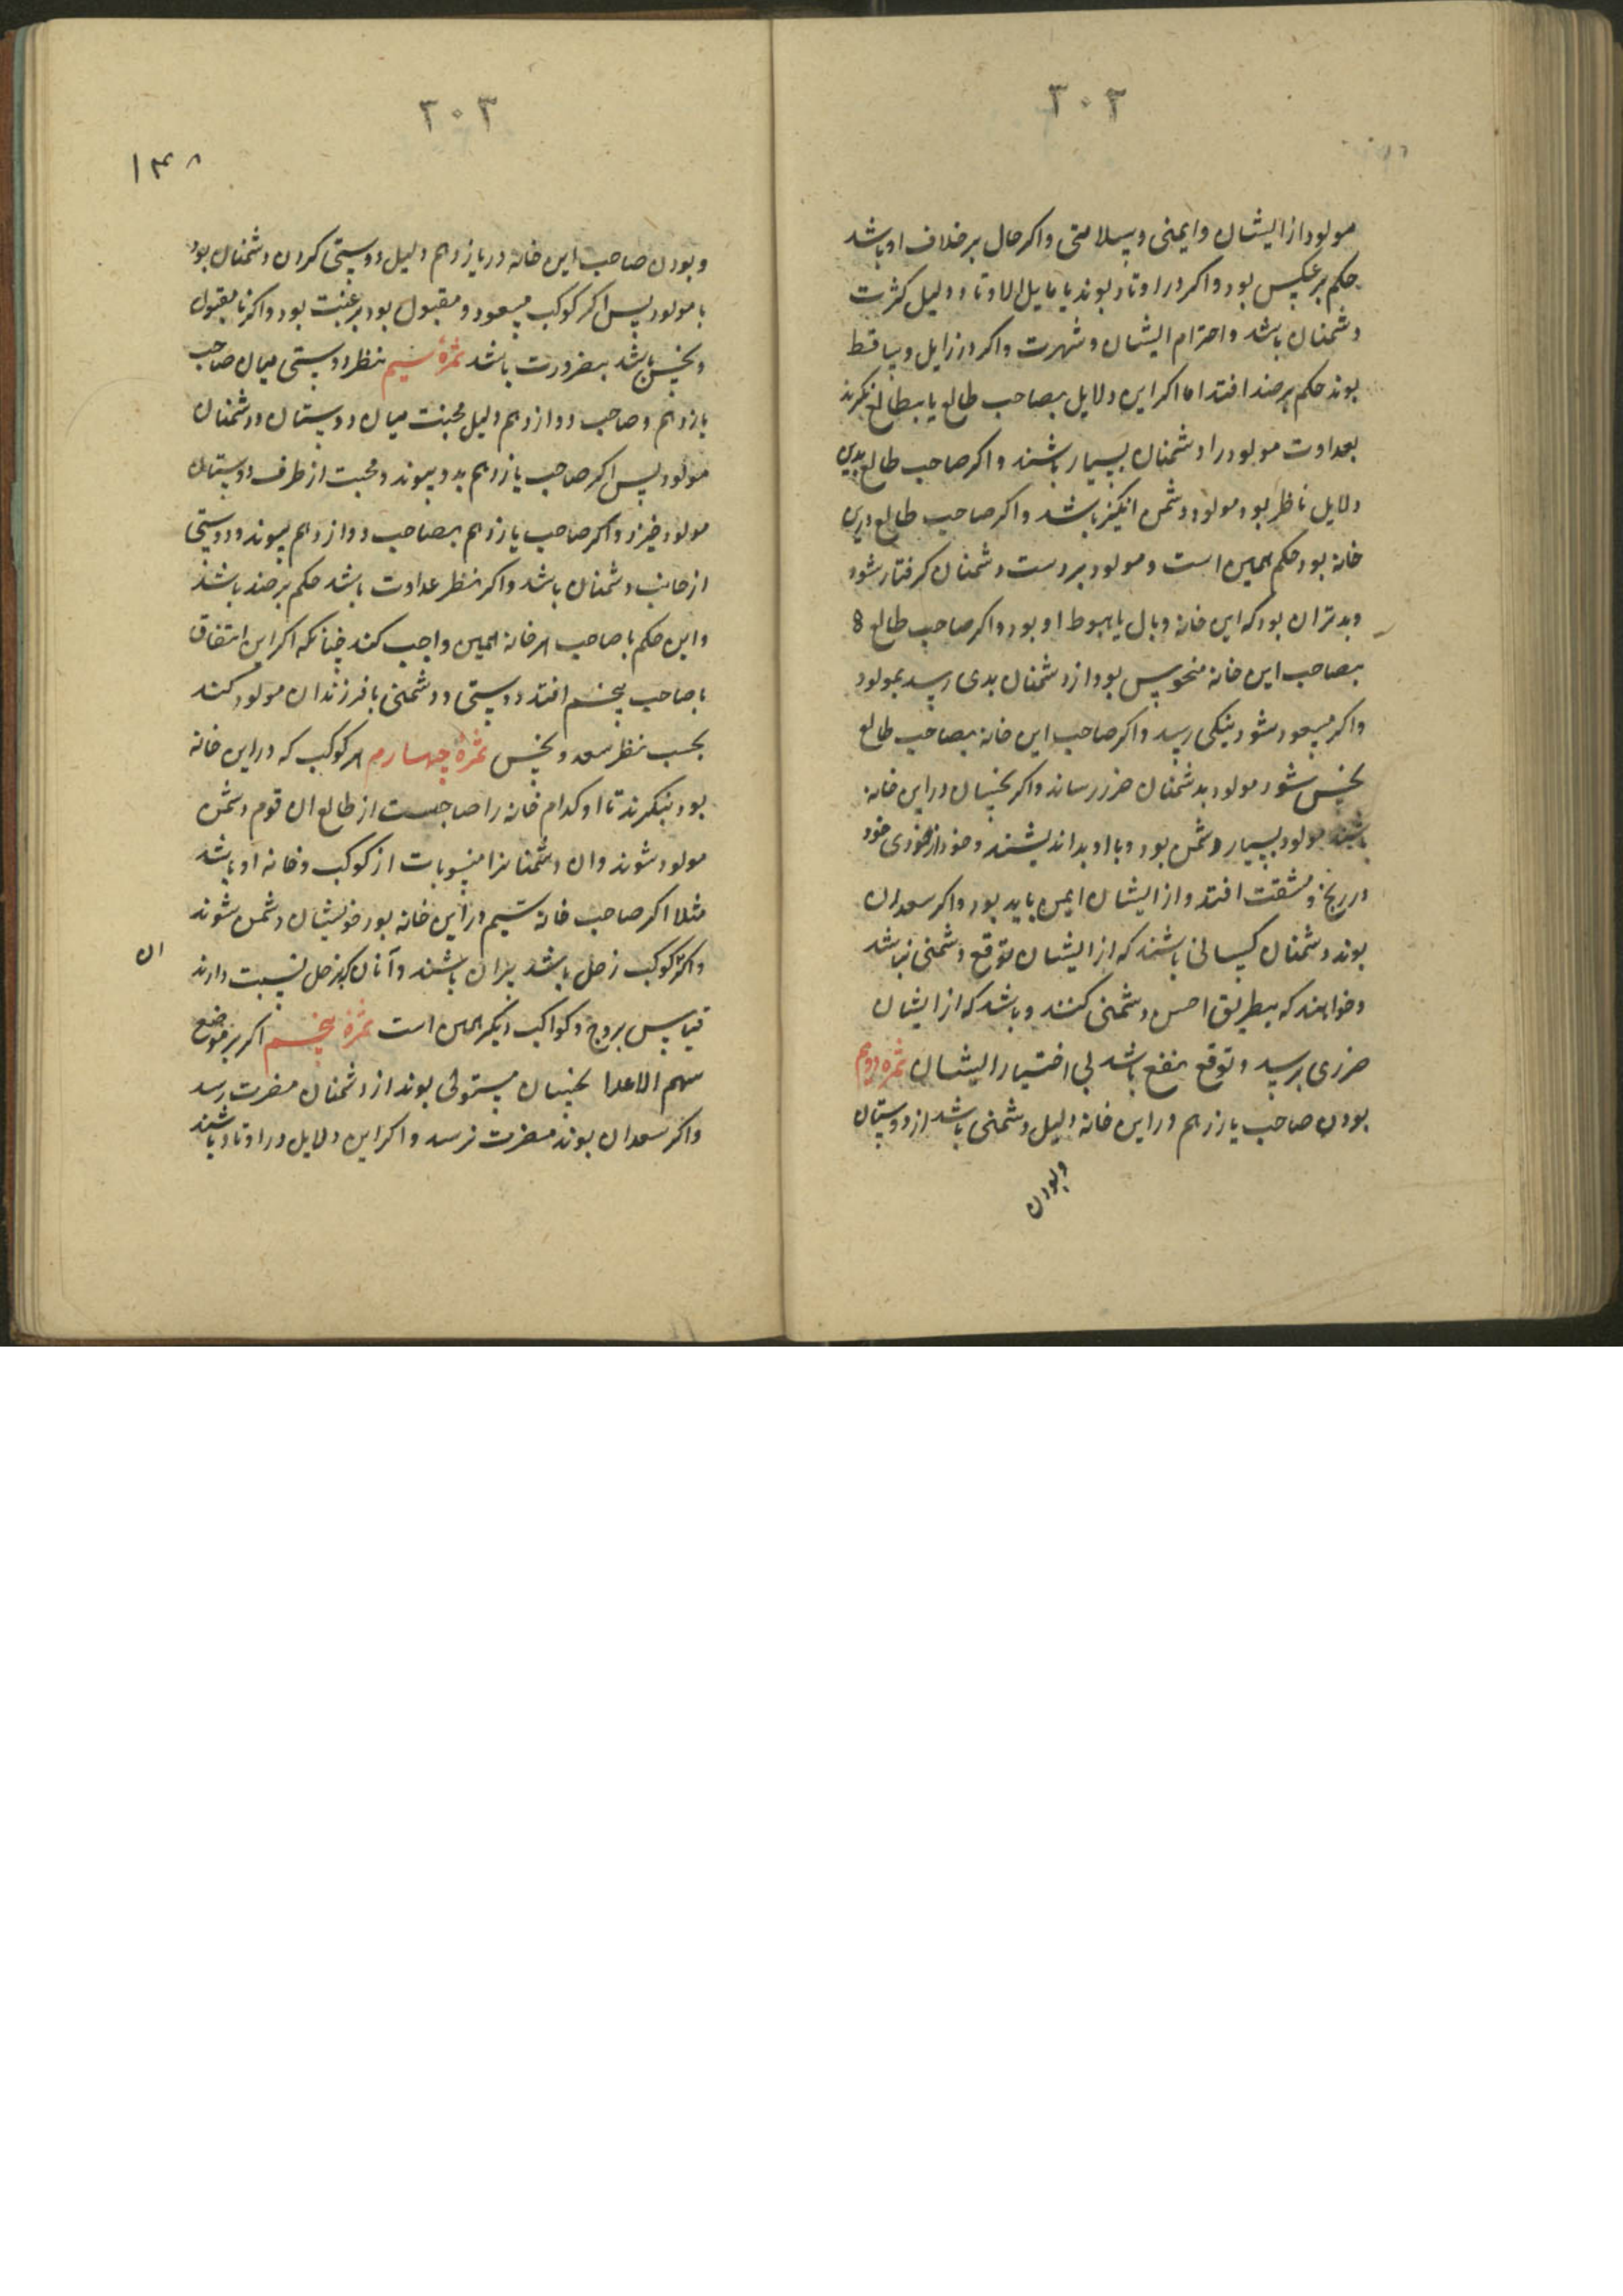 ۳۰۲
مولود از ایشان و ایمنی و سلامتی و اکر حال بر خلاف او باشد
حکم بر عکس بود و اکر در اوتاد بوند یا مایل الاوتاد دلیل کثرت
دشمنان باشد و احترام ایشان و شهرت و اکر در زایل و ساقط
بوند حکم بر ضد افتد اما اکر این دلایل بصاحب طالع یا بطالع نکرند
بعداوت مولود را دشمنان بسیار باشند و اکر صاحب طالع بدین
دلایل ناظر بود مولود دشمن انکیز باشد و اکر صاحب طالع درین
خانه بود حکم همین است و مولود بر دست دشمنان کرفتار شود
و بدتر ان بود که این خانه وبال یا هبوط او بود و اکر صاحب طالع
بصاحب این خانه منحوس بود از دشمنان بدی رسد بمولود
و اکر مسعود شود نیکی رسد و اکر صاحب این خانه بصاحب طالع
نحس شود مولود بدشمنان ضرر رساند و اکر نحسان در این خانه
باشند مولود بسیار دشمن بود و با او بد اندیشند و خود از خود
در رنج و مشقت افتد و از ایشان ایمن باید بود و اکر سعدان
بوند دشمنان کسانی باشند که از ایشان توقع دشمنی نباشد
و خواهند که بطریق احسن دشمنی کنند و باشد که از ایشان
ضرری برسد و توقع نفع باشد بی اختیار ایشان ثمره دویم
بودن صاحب یازدهم در این خانه دلیل دشمنی باشد از دوستان
و بودن
۳۰۳
۱۴۸
و بودن صاحب این خانه در یازدهم دلیل دوستی کردن دشمنان بود
با مولود پس اکر کوکب مسعود و مقبول بود برغبت بود و اکر نامقبول
و نحس باشد بضرورت باشد ثمرهٔ سیم نظر دوستی میان صاحب
یازدهم و صاحب دوازدهم دلیل محبت میان دوستان و دشمنان
مولود پس اکر صاحب یازدهم بدو پیوندد محبت از طرف دوستان
مولود خیزد و اکر صاحب یازدهم بصاحب دوازدهم پیوندد دوستی
از جانب دشمنان باشد و اکر نظر عداوت باشد حکم بر ضد باشد
و این حکم با صاحب هر خانه همین واجب کند چنانکه اکر این اتفاق
با صاحب پنجم افتد دوستی و دشمنی با فرزندان مولود کنند
بحسب نظر سعد و نحس ثمرهٔ چهارم هر کوکب که در این خانه
بود بنکرند تا او کدام خانه را صاحبست از طالع ان قوم دشمن
مولود شوند وان دشمنانرا منسوبات از کوکب و خانه او باشد
مثلا اکر صاحب خانه سیم در این خانه بود خویشان دشمن شوند
و اکر کوکب زحل باشد پیران باشند و آنان که بزحل نسبت دارند
ان
قیاس بروج و کواکب دیکر همین است ثمرهٔ پنجم اکر بر موضع
سهم الاعدا نحسان مستولی بوند از دشمنان مضرت رسد
و اکر سعدان بوند مضرت نرسد و اکر این دلایل در اوتاد باشند